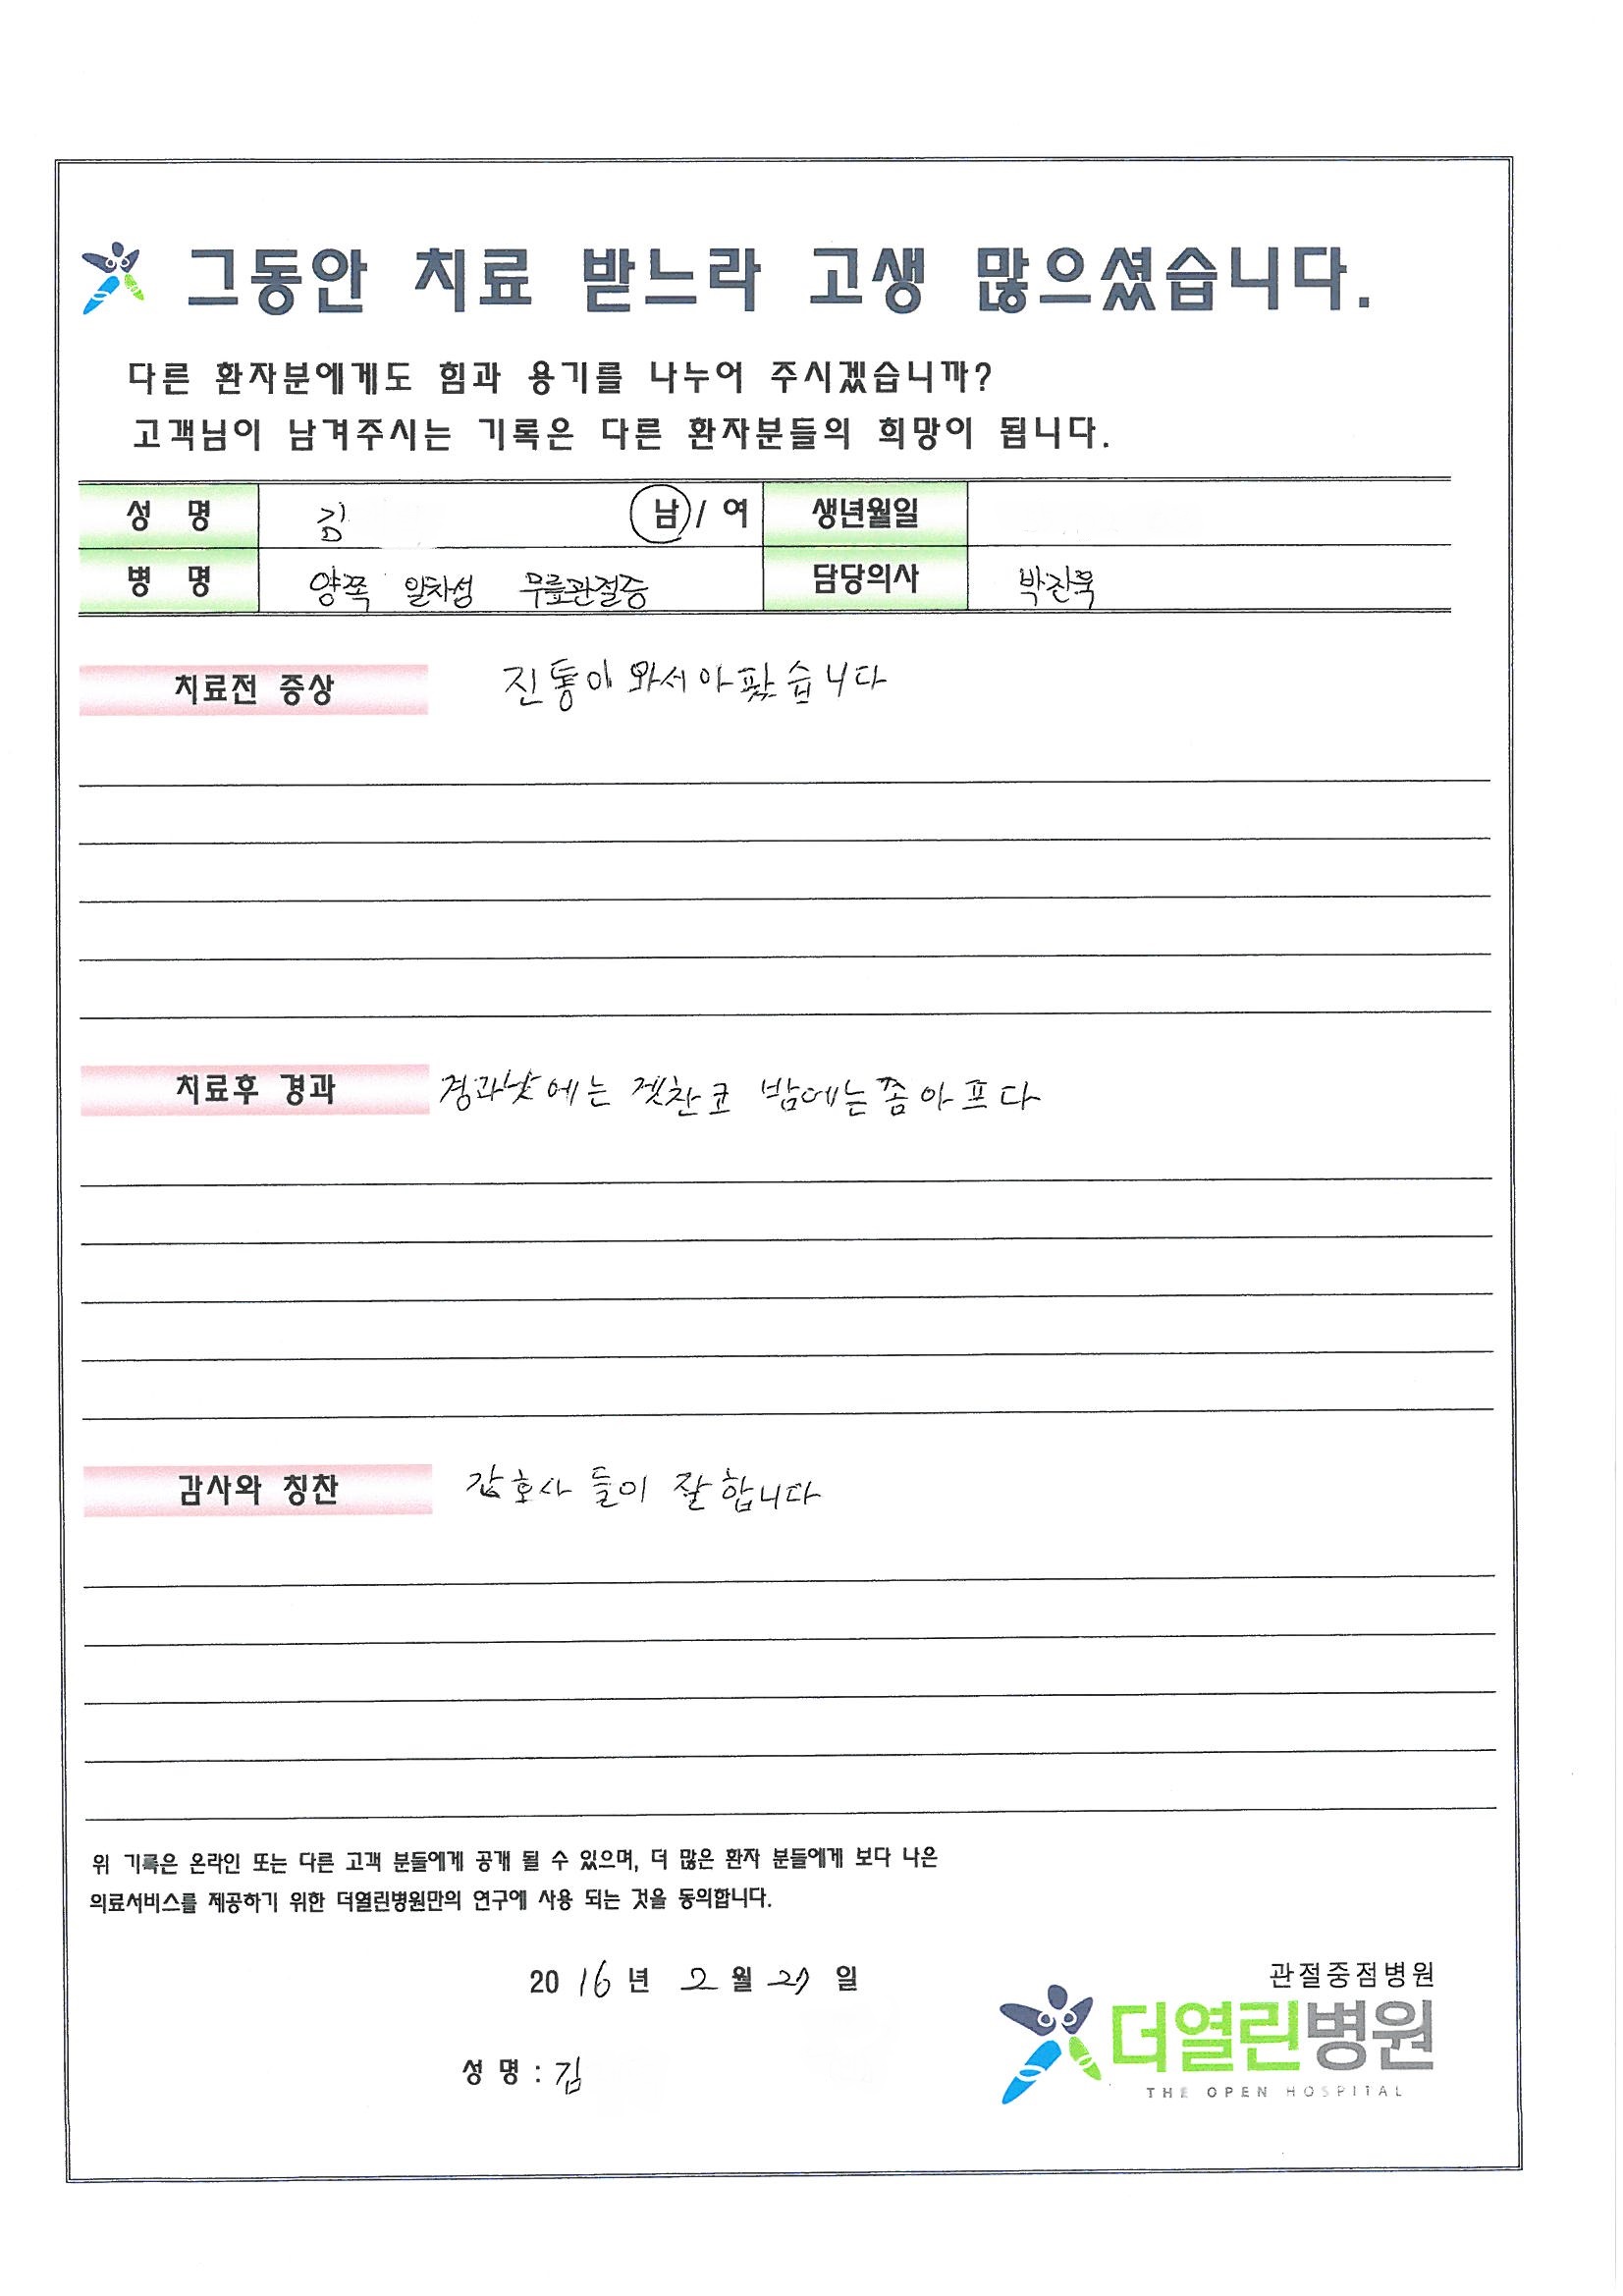 그동안 치료 받느라 고생 많으셨습니다.
다른 환자분에게도 힘과 용기를 나누어 주시겠습니까?
고객님이 남겨주시는 기록은 다른 환자분들의 희망이 됩니다.
성 명 김 남 / 여 생년월일
병 명 양쪽 일차성 무릎관절증 담당의사 박진욱
치료전 증상 진통이 와서 아팠습니다
치료후 경과 경과낮에는 겟찬코 밤에는좀아프다
감사와 칭찬 갘호사들이 잘합니다
위 기록은 온라인 또는 다른 고객 분들에게 공개 될 수 있으며, 더 많은 환자 분들에게 보다 나은
의료서비스를 제공하기 위한 더열린병원만의 연구에 사용 되는 것을 동의합니다.
2016 년 2 월 27 일
성 명 : 김
관절중점병원
더열린병원
THE OPEN HOSPITAL